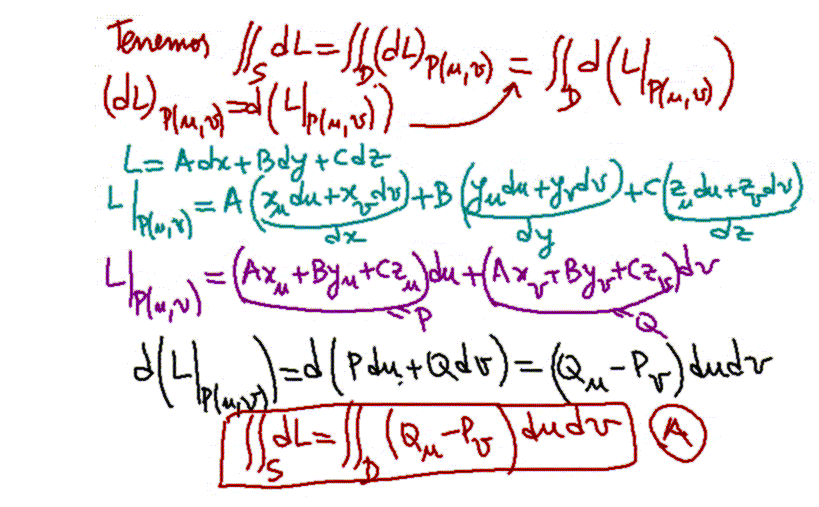 Tenemos ∬_S dL = ∬_D (dL)_{P(u,v)} = ∬_D d(L|_{P(u,v)})
(dL)_{P(u,v)} = d(L|_{P(u,v)})
L = Adx + Bdy + Cdz
L|_{P(u,v)} = A(x_u du + x_v dv) + B(y_u du + y_v dv) + C(z_u du + z_v dv)
dx dy dz
L|_{P(u,v)} = (Ax_u + By_u + Cz_u)du + (Ax_v + By_v + Cz_v)dv
P Q
d(L|_{P(u,v)}) = d(Pdu + Qdv) = (Q_u - P_v) dudv
∬_S dL = ∬_D (Q_u - P_v) dudv A